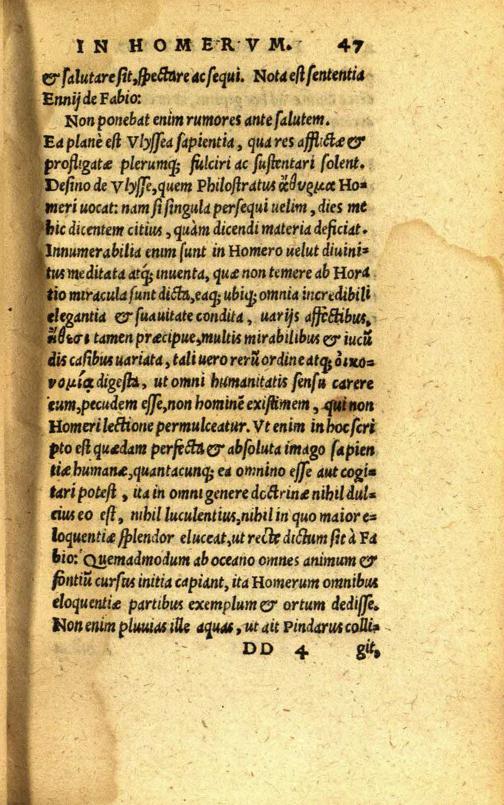 IN HOMERVM. 47
& salutare sit, spectare ac sequi. Nota est sententia
Ennij de Fabio:
Non ponebat enim rumores ante salutem.
Ea planè est Vlyssea sapientia, qua res afflictæ &
profligatæ plerumq; fulciri ac sustentari solent.
Desino de Vlysse, quem Philostratus ἄθυρμα Ho=
meri uocat: nam si singula persequi uelim, dies me
hic dicentem citius, quàm dicendi materia deficiat.
Innumerabilia enim sunt in Homero uelut diuini=
tus meditata atq; inuenta, quæ non temere ab Hora
tio miracula sunt dicta, eaq; ubiq; omnia incredibili
elegantia & suauitate condita, uarijs affectibus,
ἤθεσι tamen præcipue, multis mirabilibus & iucū
dis casibus uariata, tali uero rerū ordine atq; ὀικο=
νομίᾳ digesta, ut omni humanitatis sensu carere
eum, pecudem esse, non hominē existimem, qui non
Homeri lectione permulceatur. Vt enim in hoc scri
pto est quædam perfecta & absoluta imago sapien
tiæ humanæ, quantacunq; ea omnino esse aut cogi=
tari potest, ita in omni genere doctrinæ nihil dul=
cius eo est, nihil luculentius, nihil in quo maior e=
loquentiæ splendor eluceat, ut recte dictum sit à Fa
bio: Quemadmodum ab oceano omnes animum &
fontiū cursus initia capiant, ita Homerum omnibus
eloquentiæ partibus exemplum & ortum dedisse.
Non enim pluuias ille aquas, ut ait Pindarus colli=
DD 4 git,